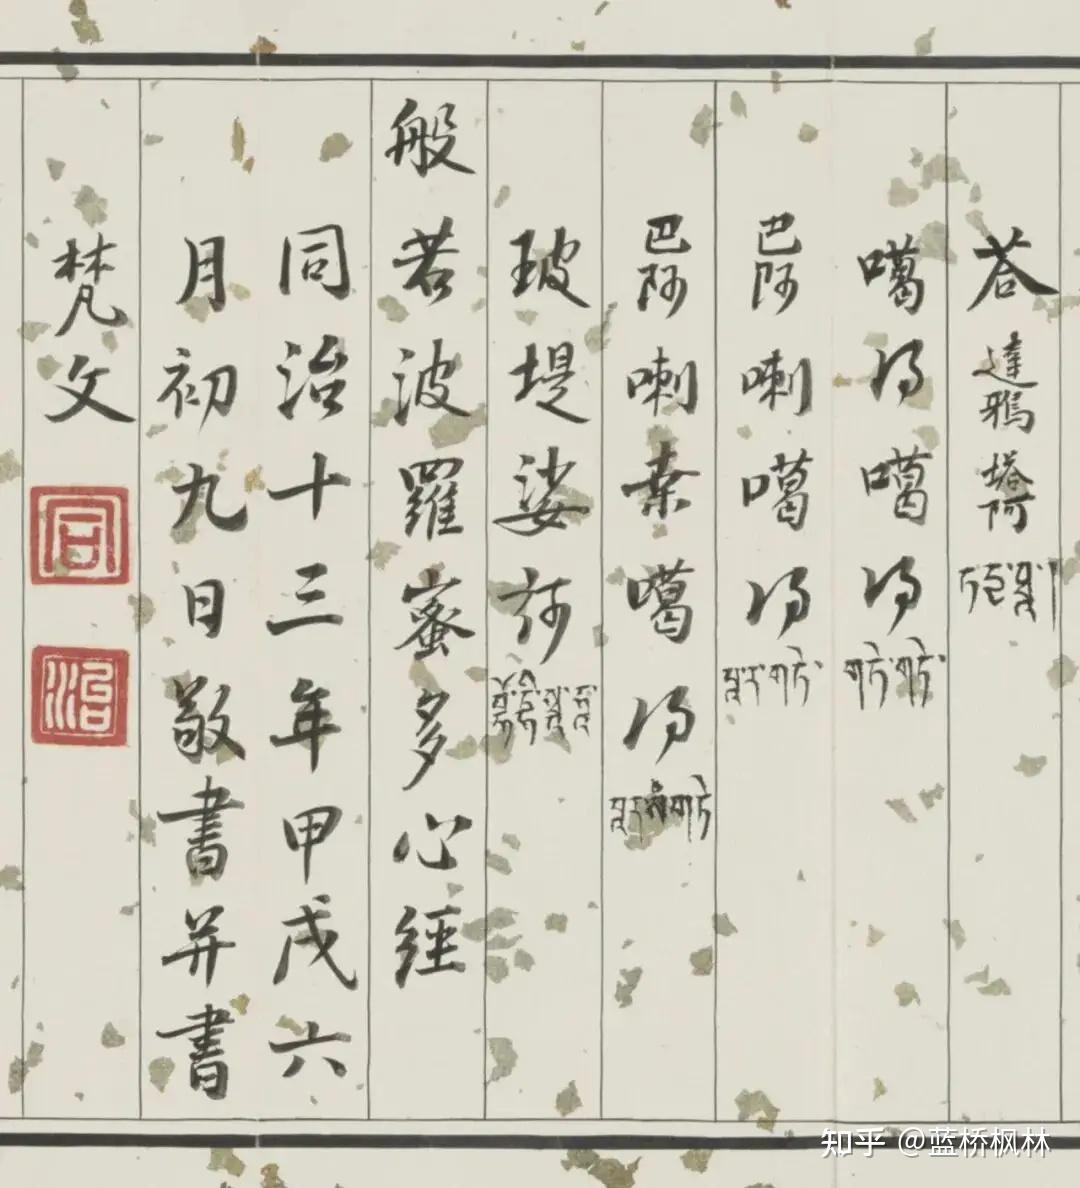 荅達鴉塔阿
噶得噶得 གཏེ་གཏེ་
巴阿喇噶得 པཱ་ར་གཏེ་
巴阿喇桒噶得
玻堤娑訶
般若波羅蜜多心經
同治十三年甲戌六
月初九日敬書并書
梵文
同
治
知乎 @蓝桥枫林